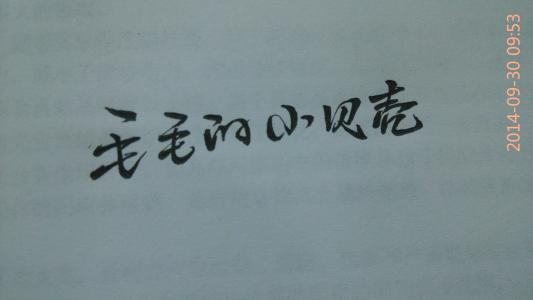 毛毛的小贝壳
2014-09-30 09:53